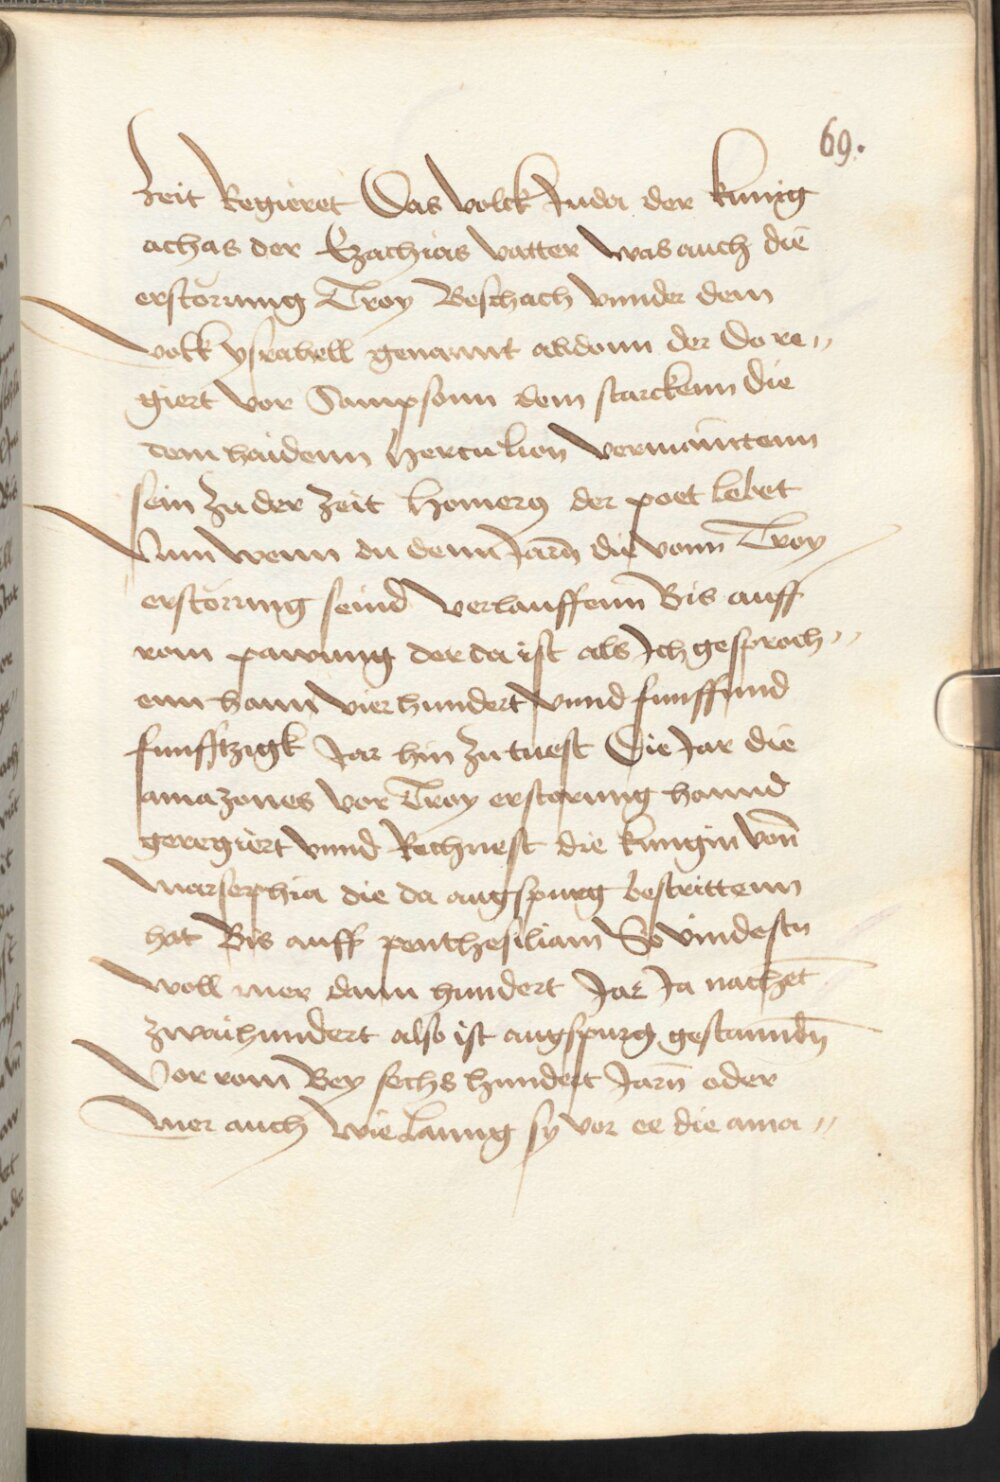 69.
Zeit Regieret Das volck Juda der kunig
achas der Ezachias vatter was auch die
erstörung Troy Beschach vnnder dem
volk ysrahell genannt abdonn der Do re„
giert vor Sampsonn dem starckenn die
dem haidenn Herculien vermainttenn
sein Zu der Zeit homerꝰ der poet lebet
Nun wenn du denn Jarn̄ die vonn Troy
erstörung seind verlauffenn Bis auff
rom pawung der da ist als Ich gesproch„
enn hann vierhundert vnnd funffund
funfftzigk Jar hin zutuest Die Jar die
amazones vor Troy erstorung hannd
geregiert vnnd Rechnest die kungin von̄
marsephia die da augspurg bestrittenn
hat Bis auff penthesiliam So vindestu
woll mer dann hundert Jar Ja nachet
zwaihundert also ist augspurg gestannden̄
Vor rom Bey sechs hundert Jarn̄ oder
mer auch wie lanng sy vor ee die ama„